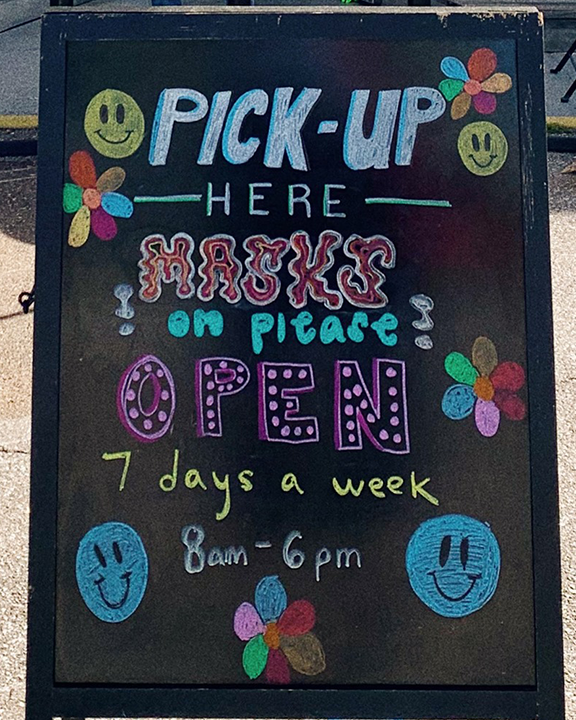 PICK-UP
HERE
MASKS
on please
OPEN
7 days a week
8am-6pm